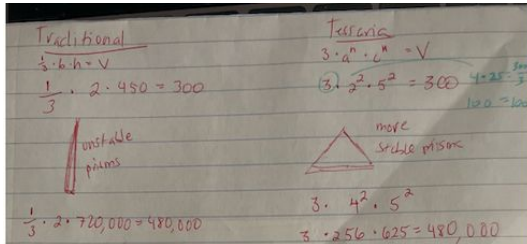 Traditional
1/3 · b · h = V
1/3 · 2 · 450 = 300
unstable
prisms
1/3 · 2 · 720,000 = 480,000
3 · aⁿ · cⁿ = V
3 · 2² · 5² = 300
4 · 25 = 300/3
100 = 100
more
stable prisms
3 · 4² · 5²
3 · 256 · 625 = 480,000